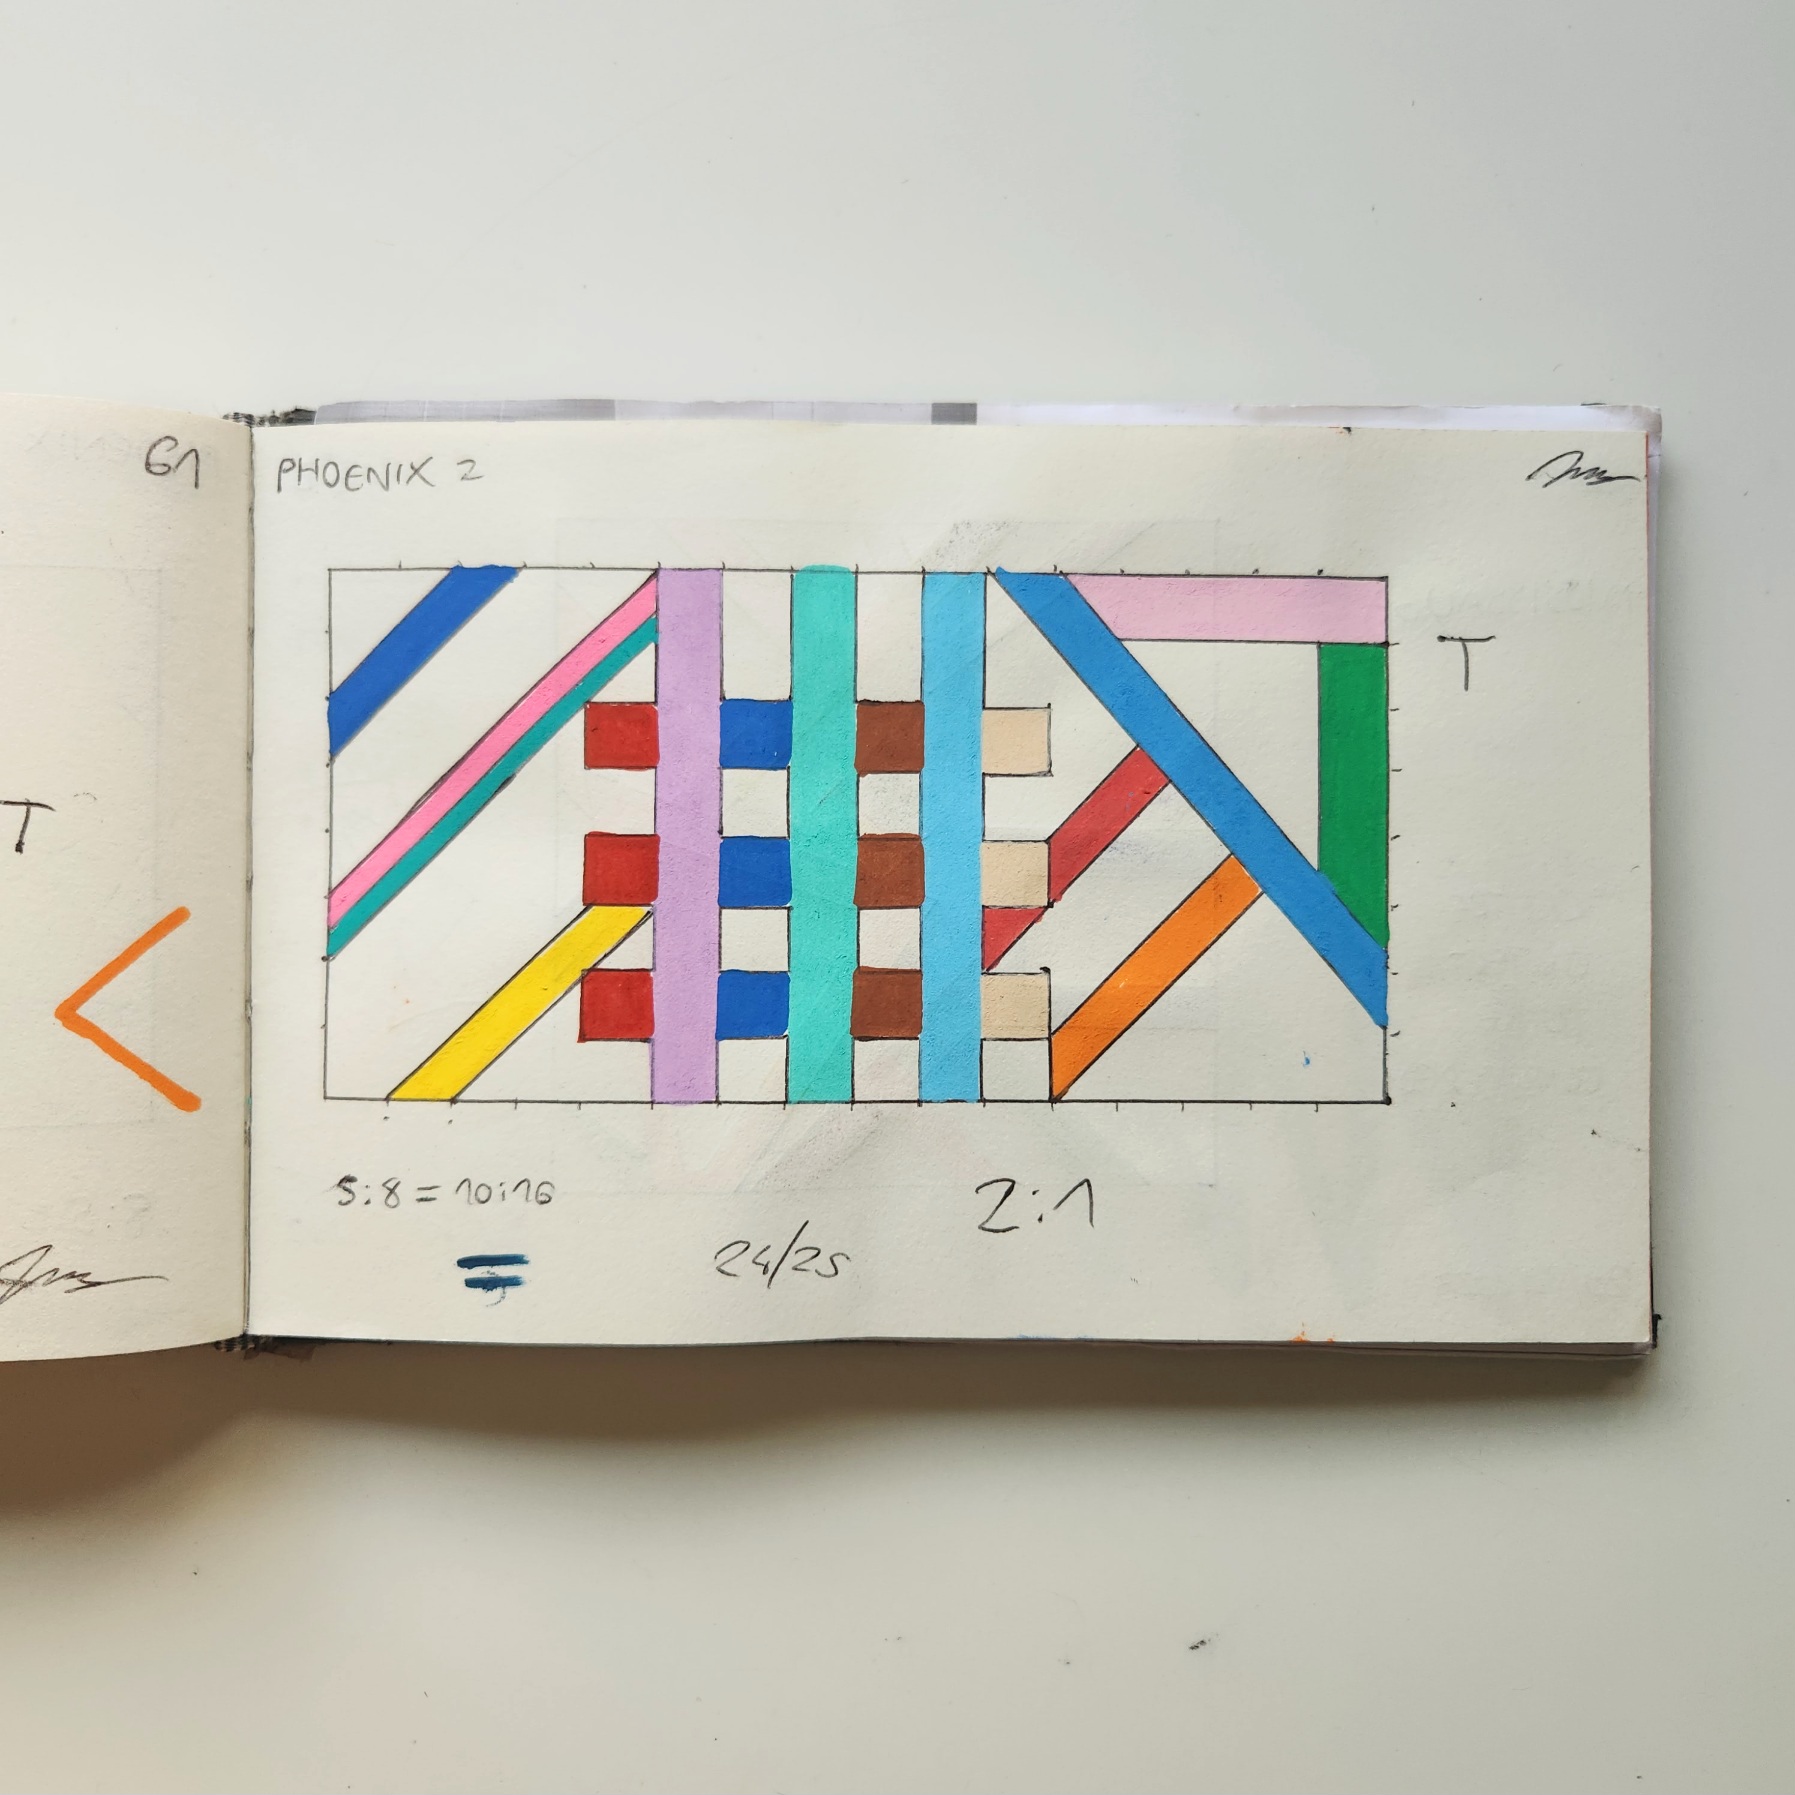 61
PHOENIX 2
T
T
5:8 = 10:16
2:1
24/25